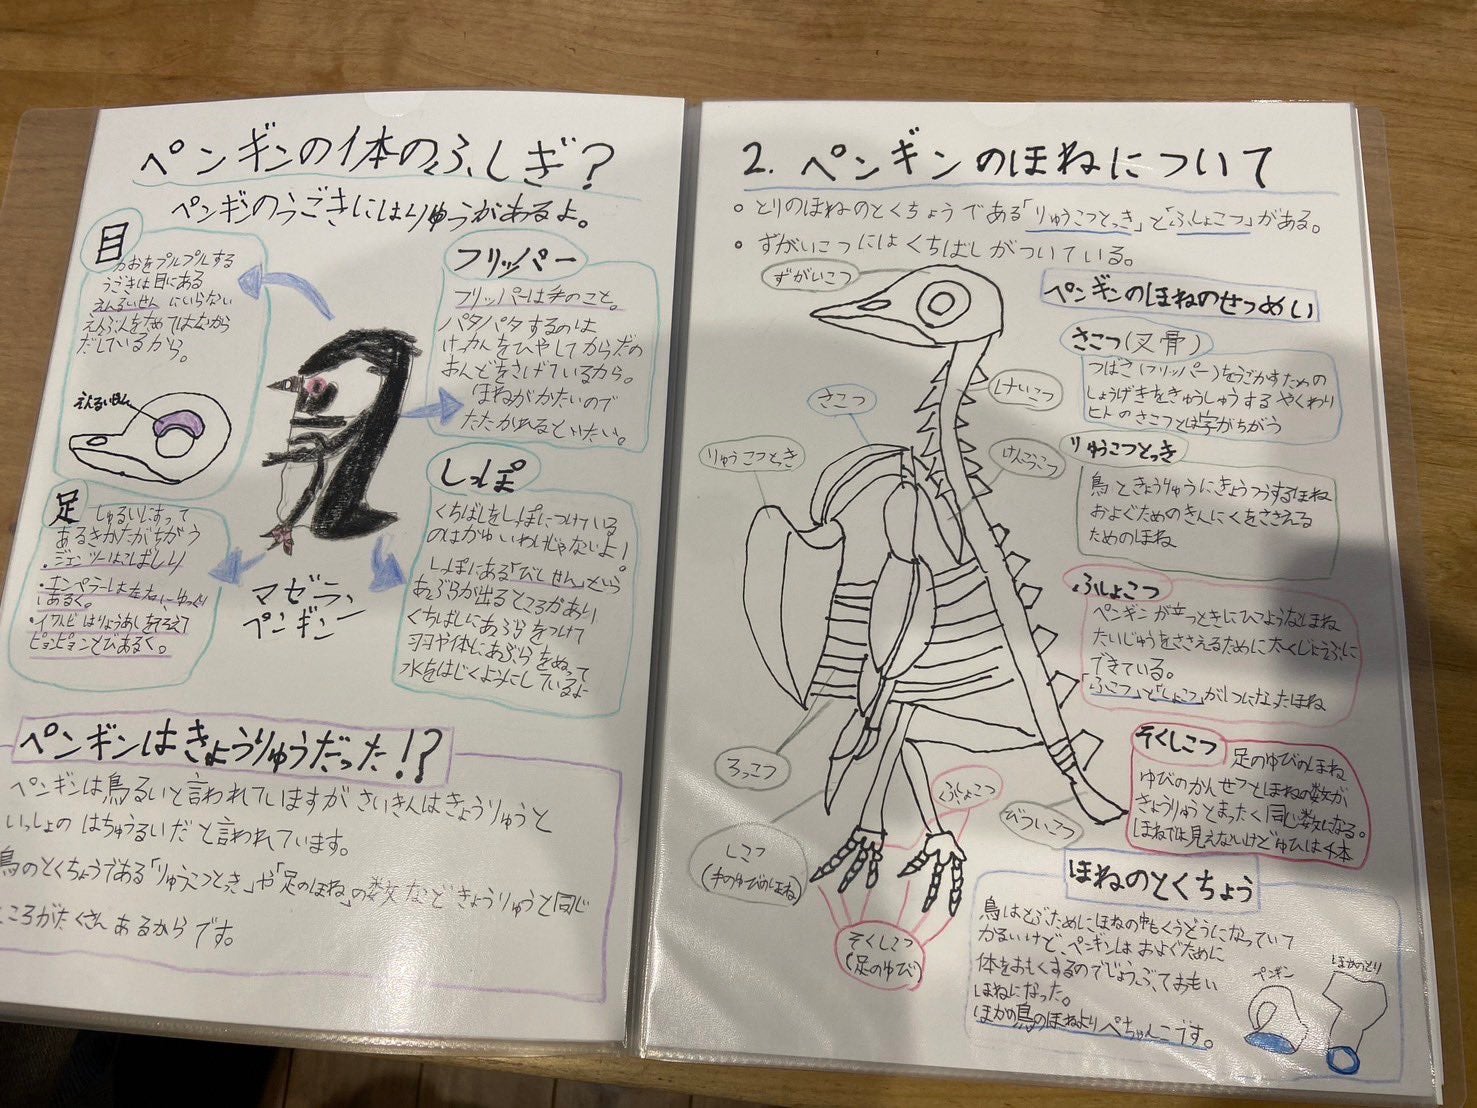 ペンギンの体のふしぎ?
ペンギンのうごきにはりゅうがあるよ。
目
かおをプルプルする
うごきは目にある
えんるいせんにいらない
えんぶんをためてはなから
だしているから。
えんるいせん
フリッパー
フリッパーは手のこと。
パタパタするのは
けっかんをひやしてからだの
おんどをさげているから。
ほねがかたいので
たたかれるといたい。
足
しゅるいによって
あるきかたがちがう
・ジェンツーはこばしり
・エンペラーは左右にゆっくり
あるく。
・イワトビはりょうあしをそろえて
ピョンピョンととびあるく。
マゼラン
ペンギン
しっぽ
くちばしをしっぽにつけている
のはかゆいわけじゃないよ!
しっぽにある「びしせん」という
あぶらが出るところがあり
くちばしにあぶらをつけて
羽や体にあぶらをぬって
水をはじくようにしているよ
ペンギンはきょうりゅうだった!?
ペンギンは鳥るいと言われていますがさいきんはきょうりゅうと
いっしょのはちゅうるいだと言われています。
鳥のとくちょうである「りゅうこつとっき」や「足のほね」の数などきょうりゅうと同じ
ところがたくさんあるからです。
2. ペンギンのほねについて
。とりのほねのとくちょうである「りゅうこつとっき」と「ふしょこつ」がある。
。ずがいこつにはくちばしがついている。
ずがいこつ
けいこつ
さこつ
りゅうこつとっき
けんこうこつ
ろっこつ
しこつ
(手のゆびのほね)
ふしょこつ
びついこつ
そくしこつ
(足のゆび)
ペンギンのほねのせつめい
さこつ(叉骨)
つばさ(フリッパー)をうごかすための
しょうげきをきゅうしゅうするやくわり
ヒトのさこつとは字がちがう
りゅうこつとっき
鳥ときょうりゅうにきょうつうするほね
およぐためのきんにくをささえる
ためのほね
ふしょこつ
ペンギンが立つときにひつようなほね
たいじゅうをささえるために太くじょうぶに
できている。
「ふこつ」と「しょこつ」が1つになったほね
そくしこつ
足のゆびのほね
ゆびのかんせつとほねの数が
きょうりゅうとまったく同じ数になる。
ほねでは見えないけどゆびは4本
ほねのとくちょう
鳥はとぶためにほねの中もくうどうになっていて
かるいけど、ペンギンはおよぐために
体をおもくするのでじょうぶでおもい
ほねになった。
ほかの鳥のほねよりぺちゃんこです。
ペンギン
ほかのとり